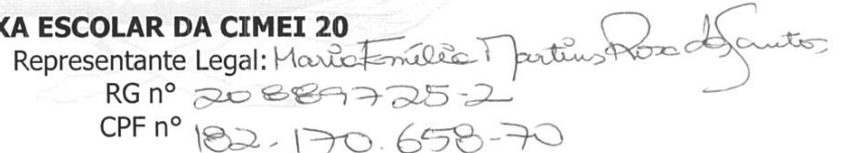 XA ESCOLAR DA CIMEI 20
Representante Legal: Maria Emília Martins Rosa dos Santos
RG nº 20889725-2
CPF nº 182.170.658-70